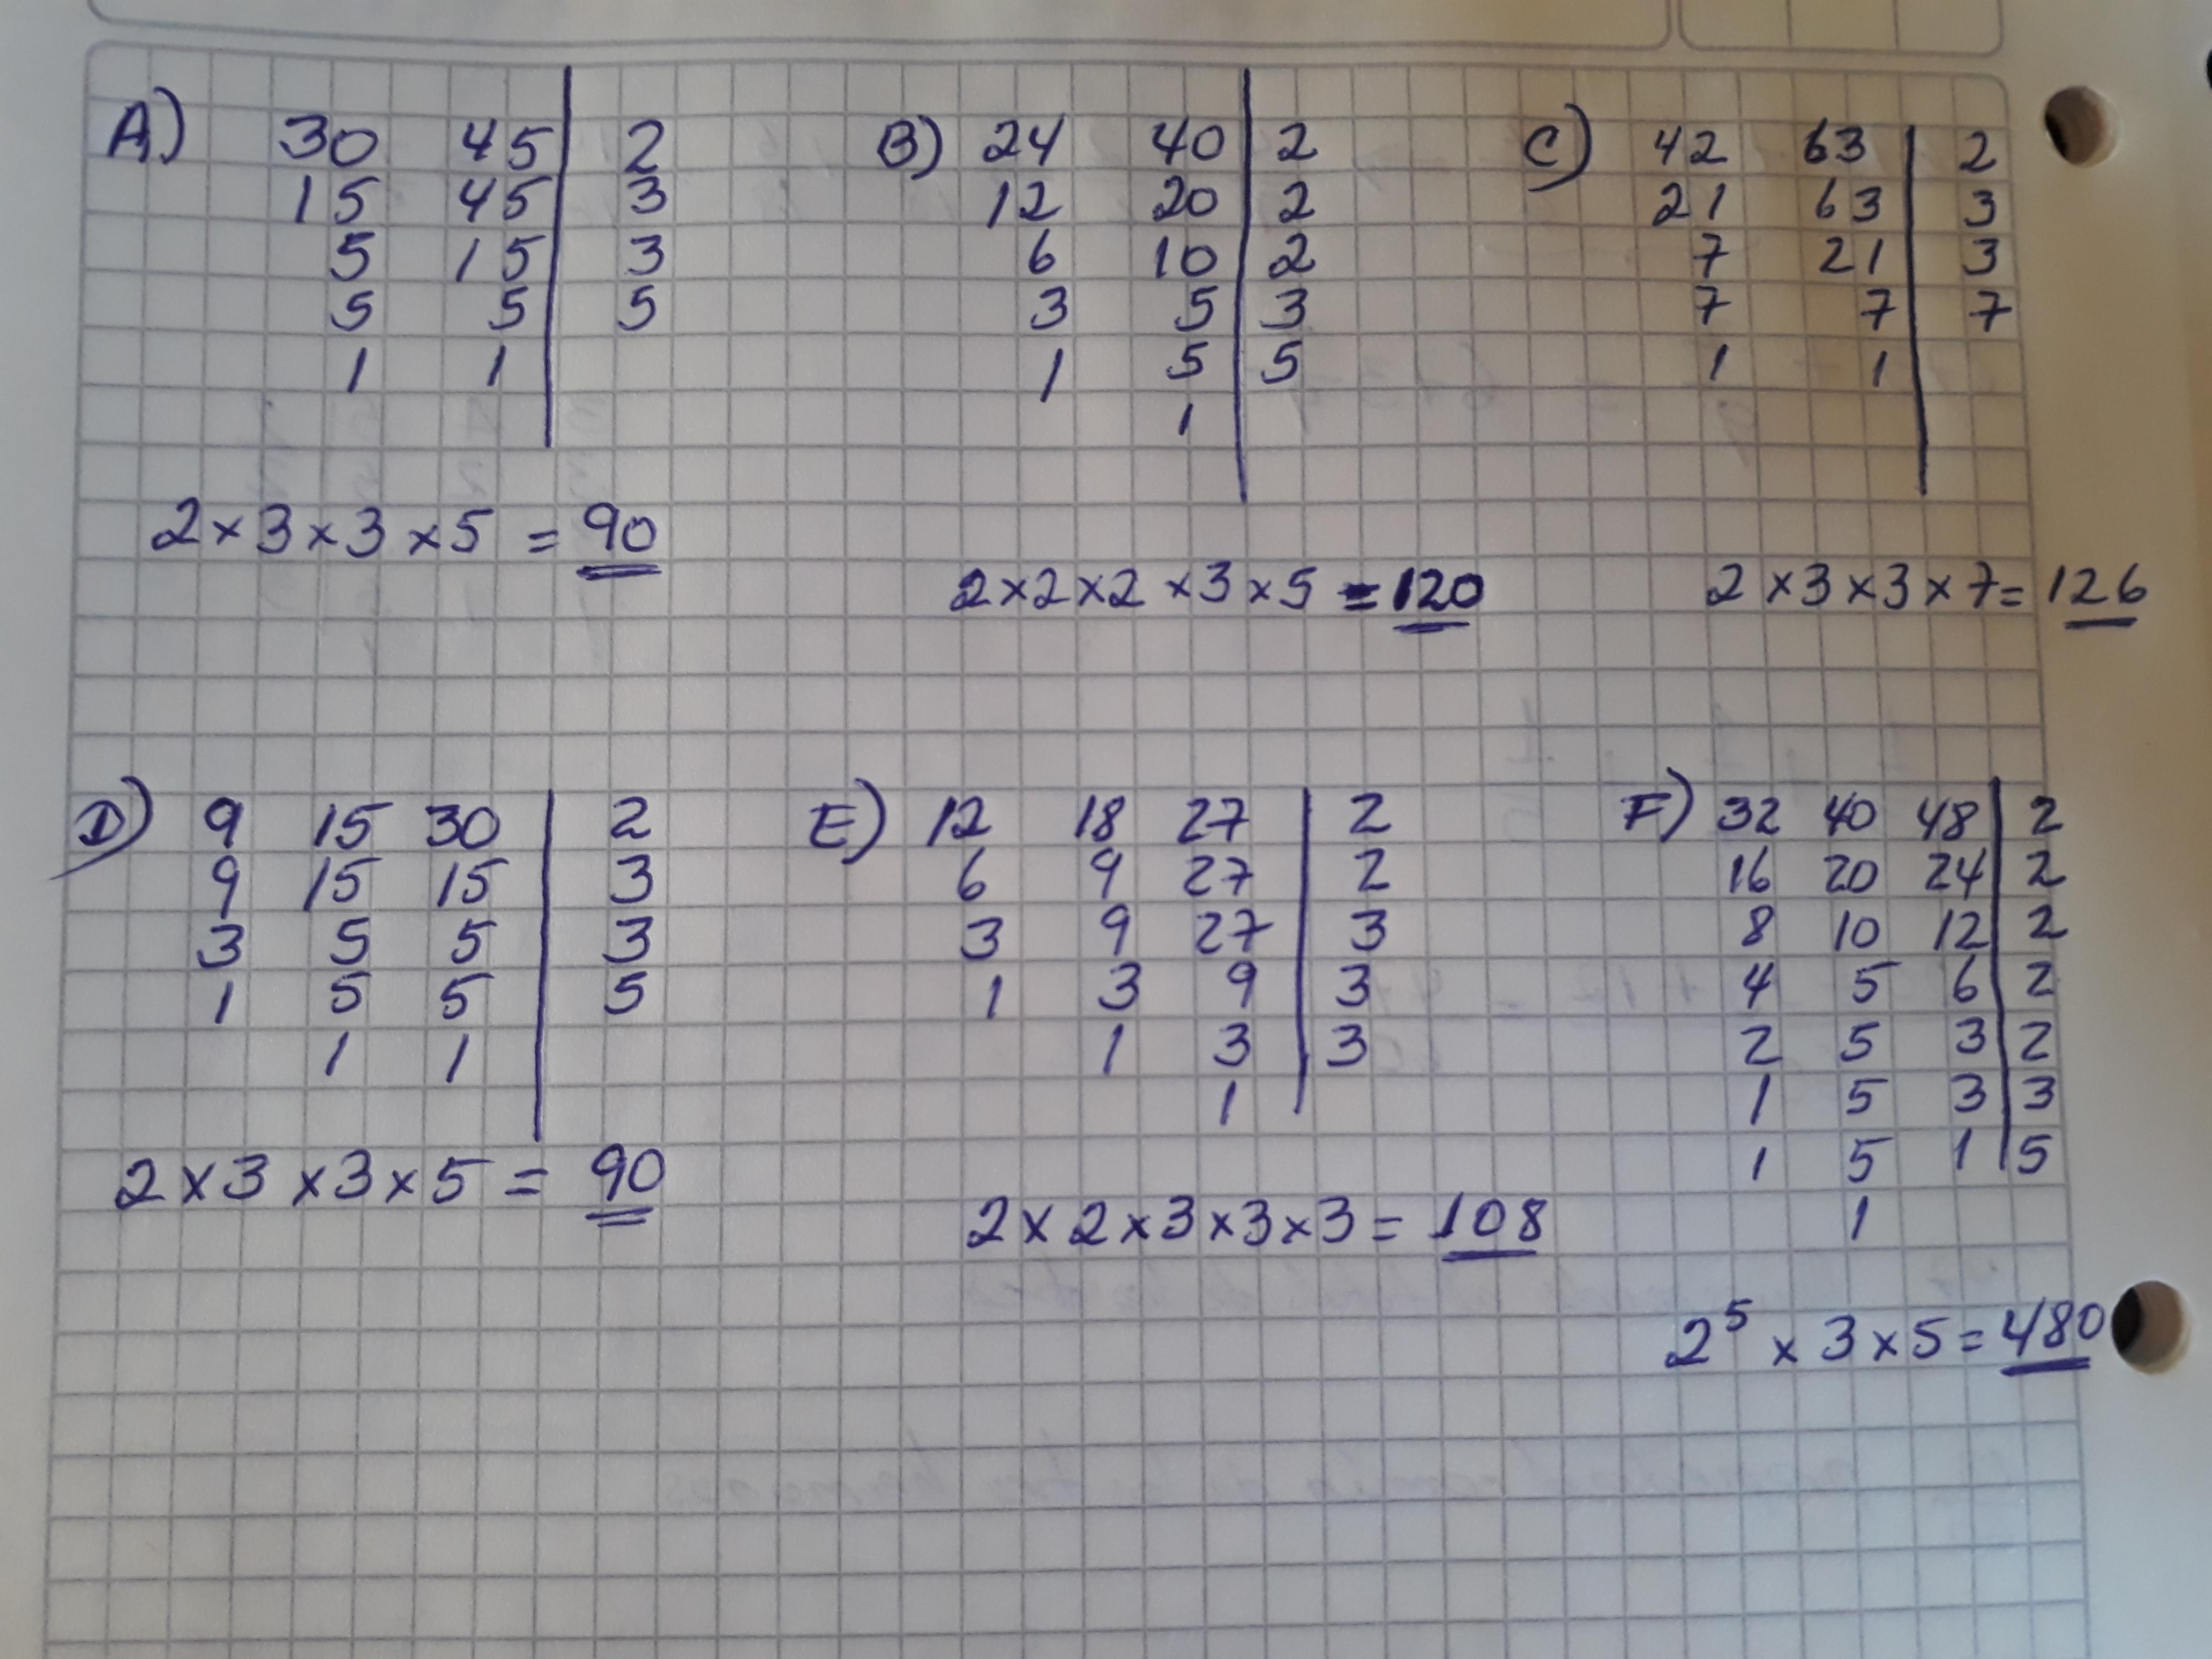 A) 30 45 | 2
15 45 | 3
5 15 | 3
5 5 | 5
1 1
2 × 3 × 3 × 5 = 90
B) 24 40 | 2
12 20 | 2
6 10 | 2
3 5 | 3
1 5 | 5
1
2 × 2 × 2 × 3 × 5 = 120
C) 42 63 | 2
21 63 | 3
7 21 | 3
7 7 | 7
1 1
2 × 3 × 3 × 7 = 126
D) 9 15 30 | 2
9 15 15 | 3
3 5 5 | 3
1 5 5 | 5
1 1
2 × 3 × 3 × 5 = 90
E) 12 18 27 | 2
6 9 27 | 2
3 9 27 | 3
1 3 9 | 3
1 3 | 3
1
2 × 2 × 3 × 3 × 3 = 108
F) 32 40 48 | 2
16 20 24 | 2
8 10 12 | 2
4 5 6 | 2
2 5 3 | 2
1 5 3 | 3
1 5 1 | 5
1
2⁵ × 3 × 5 = 480